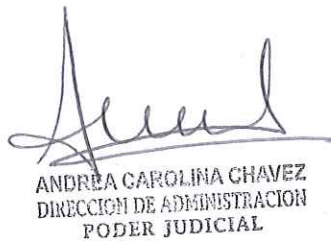 ANDREA CAROLINA CHAVEZ
DIRECCION DE ADMINISTRACION
PODER JUDICIAL